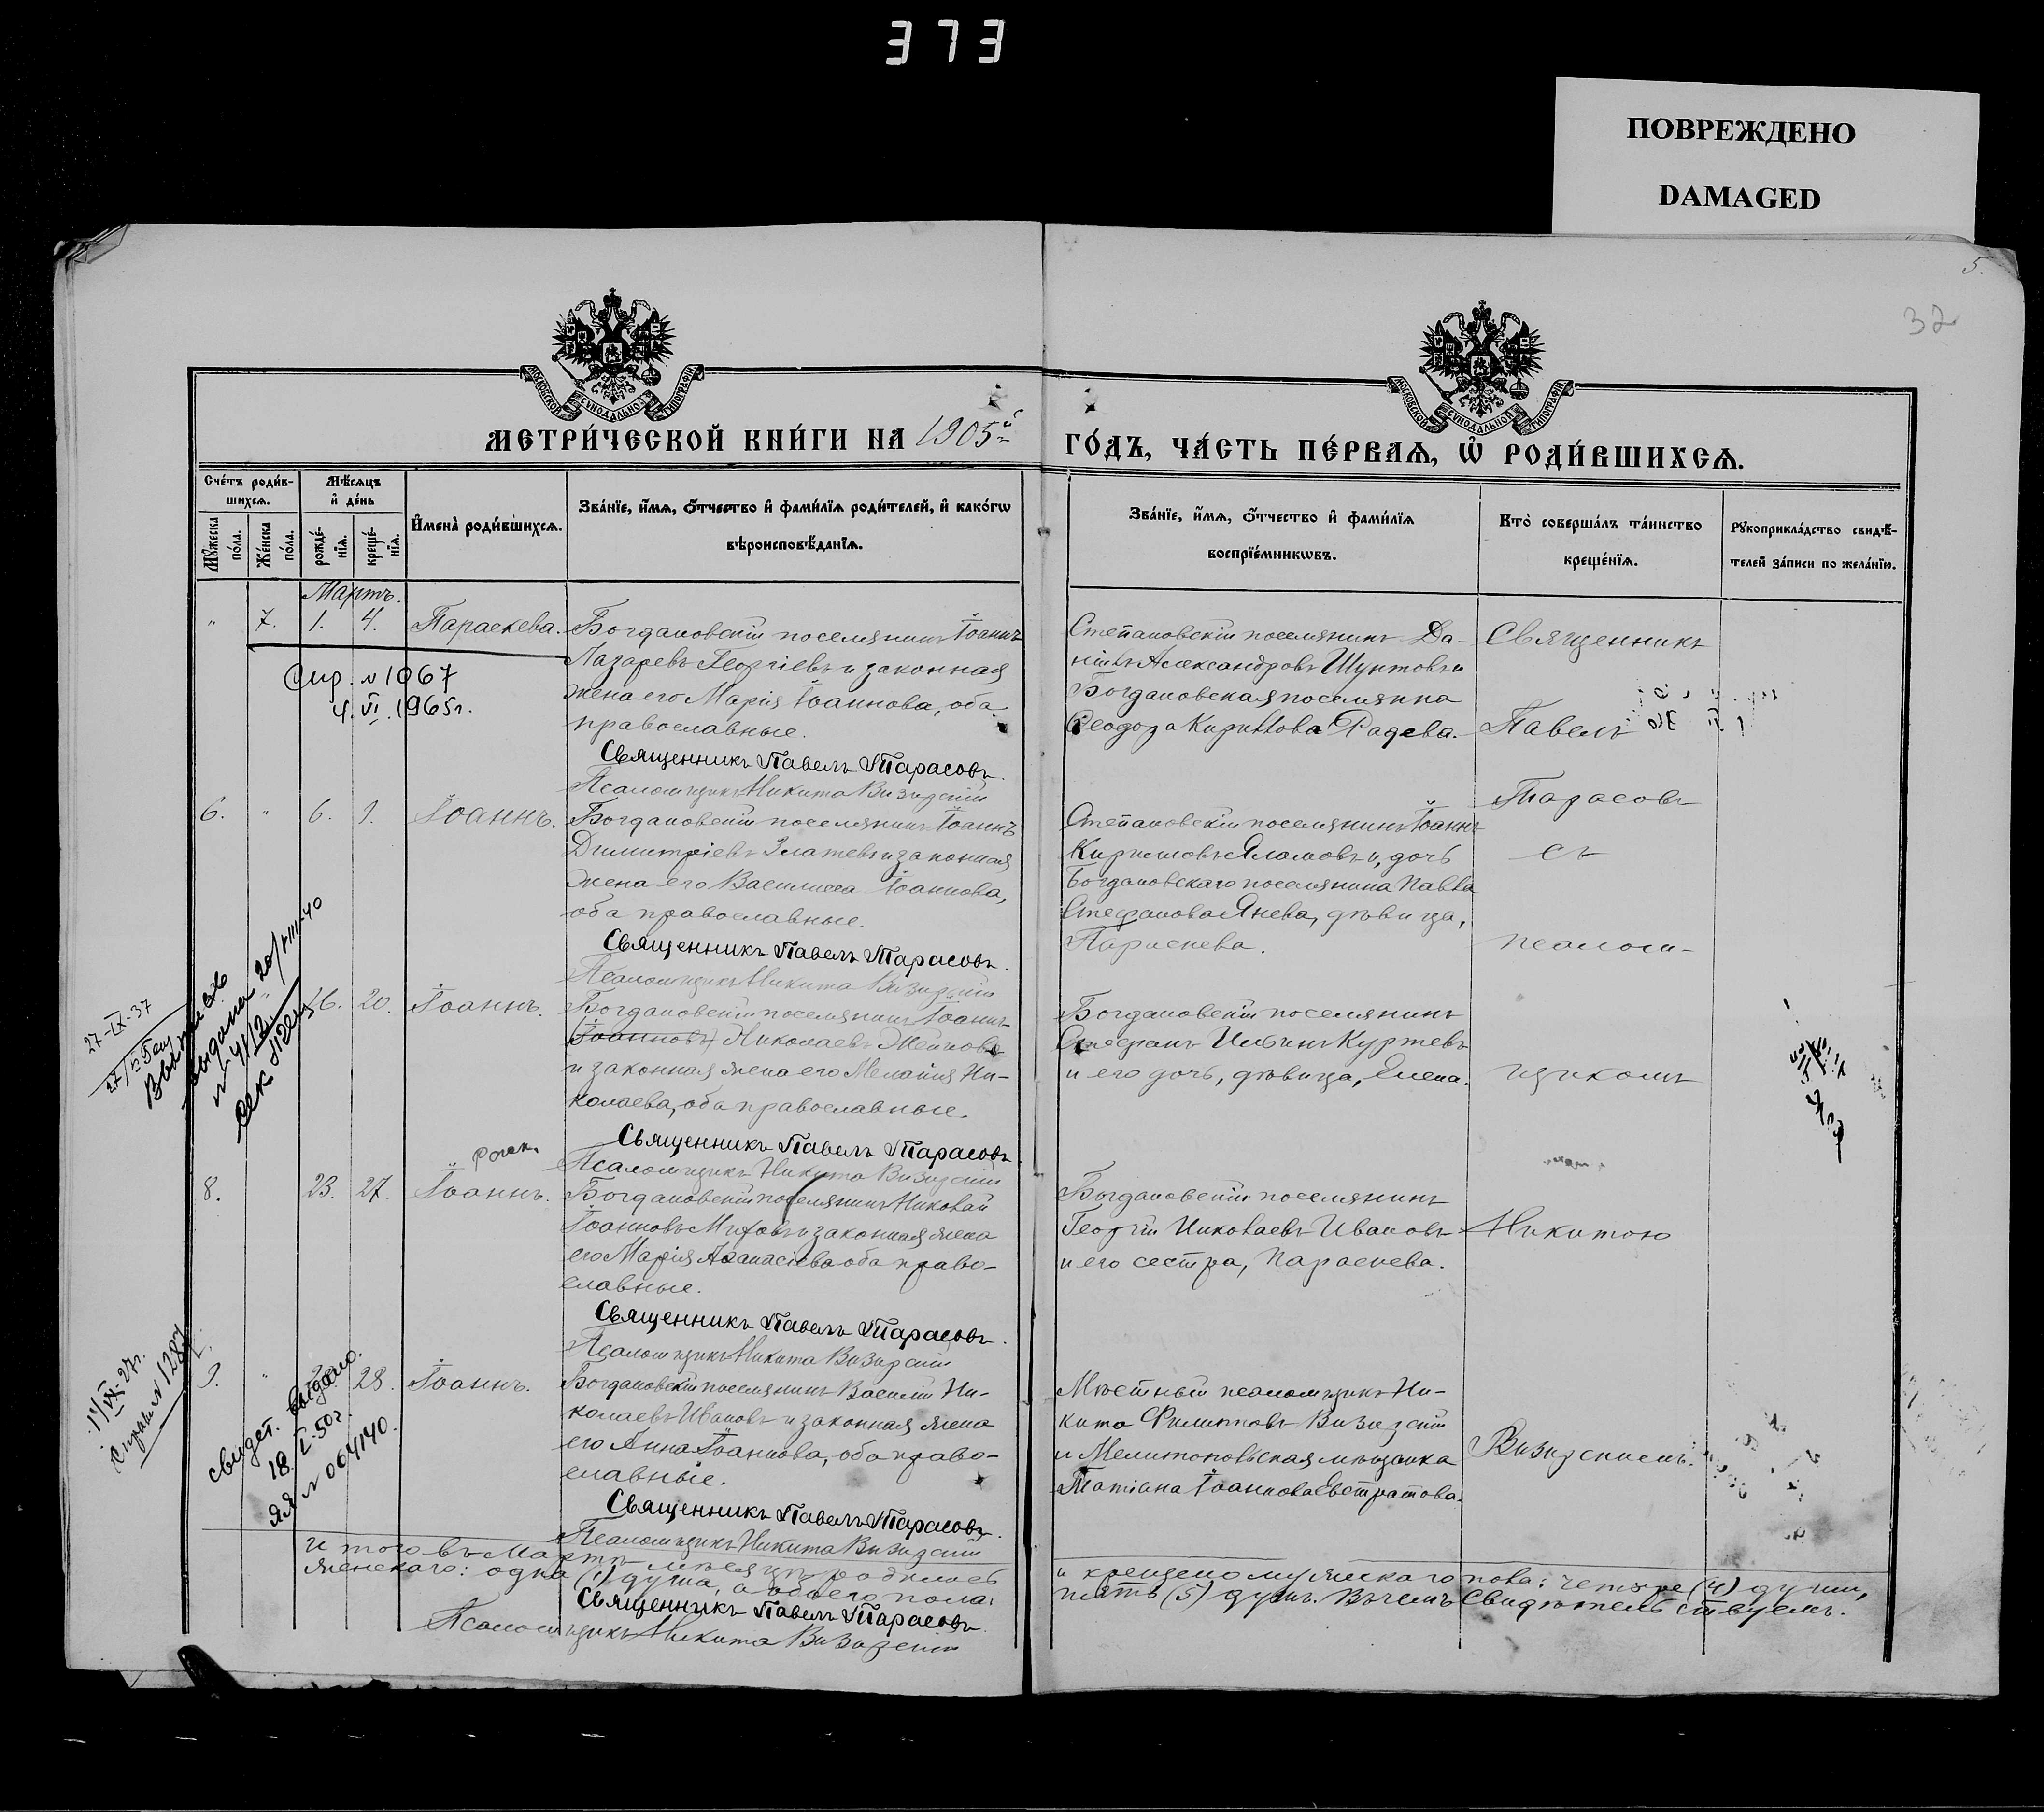 373
ПОВРЕЖДЕНО
DAMAGED
5.
32
МОСКОВСКОЙ СѴНОДАЛЬНОЙ ТИПОГРАФІИ
МОСКОВСКОЙ СѴНОДАЛЬНОЙ ТИПОГРАФІИ
МЕТРИ́ЧЕСКОЙ КНИ́ГИ НА 1905й
ГО́ДЪ, ЧА́СТЬ ПЕ́РВАѦ, Ѡ҆ РОДИ́ВШИХСѦ.
Сче́тъ роди́в-
шихсѧ.
Мѣ́сѧцъ
и҆ де́нь
Мꙋ́жеска
по́ла.
Же́нска
по́ла.
рожде́-
нїѧ.
креще́-
нїѧ.
И҆мена̀ роди́вшихсѧ.
Зва́нїе, и҆́мѧ, ѻ҆́тчество и҆ фами́лїѧ роди́телей, и҆ како́гѡ
вѣроисповѣ́данїѧ.
Зва́нїе, и҆́мѧ, ѻ҆́тчество и҆ фами́лїѧ
воспрїе́мникѡвъ.
Кто̀ соверша́лъ та́инство
креще́нїѧ.
Рꙋкоприкла́дство свидѣ́-
телей за́писи по жела́нїю.
Мартъ.
" 7. 1. 4. Параскева.
Богдановскій поселянинъ Іоаннъ
Лазаревъ Георгіевъ и законная
жена его Марія Іоаннова, оба
православные.
Священникъ Павелъ Тарасовъ.
Псаломщикъ Никита Визирскій
Спр. N 1067
4. VI. 1965г.
Степановскій поселянинъ Да-
ніилъ Александровъ Шунтовъ и
Богдановская поселянка
Ѳеодора Кириллова Радева.
Священникъ
Павелъ
Тарасовъ
съ
псалом-
щикомъ
Никитою
Визирскимъ.
6. " 6. 9. Іоаннъ.
Богдановскій поселянинъ Іоаннъ
Димитріевъ Златевъ и законная
жена его Василисса Іоаннова,
оба православные.
Священникъ Павелъ Тарасовъ.
Псаломщикъ Никита Визирскій
Степановскій поселянинъ Іоаннъ
Кирилловъ Яламовъ и, дочь
Богдановскаго поселянина Павла
Стефанова Янева, дѣвица,
Параскева.
16. 20. Іоаннъ.
Богдановскій поселянинъ Іоаннъ
(Іоанновъ) Николаевъ Жейновъ
и законная жена его Меланія Ни-
колаева, оба православные.
Священникъ Павелъ Тарасовъ
Псаломщикъ Никита Визирскій
27-IX-37
выдана 20/VIII-40
N 41/12
Богдановскій поселянинъ
Стефанъ Иліинъ Куртевъ
и его дочь, дѣвица, Елена.
8. 23. 27. Іоаннъ.
Богдановскій поселянинъ Николай
Іоанновъ Митовъ и законная жена
его Марія Аѳанасіева оба право-
славные.
Священникъ Павелъ Тарасовъ.
Псаломщикъ Никита Визирскій
Богдановскій поселянинъ
Георгій Николаевъ Ивановъ
и его сестра, Параскева.
9. " 28. Іоаннъ.
Богдановскій поселянинъ Василій Ни-
колаевъ Ивановъ и законная жена
его Анна Іоаннова, оба право-
славные.
Священникъ Павелъ Тарасовъ.
Псаломщикъ Никита Визирскій
Справка N 1287
свидет. выдано.
18. I-50г.
ЯЯ N 064140.
Мѣстный псаломщикъ Ни-
кита Филипповъ Визирскій
и Мелитопольская мѣщанка
Татіана Іоаннова Евстратова.
Итого въ Мартѣ мѣсяцѣ родилось и крещено мужскаго пола: четыре (4) души,
женскаго: одна (1) душа, а обоего пола: пять (5) душъ. Въ чемъ свидѣтельствуемъ.
Священникъ Павелъ Тарасовъ.
Псаломщикъ Никита Визирскій